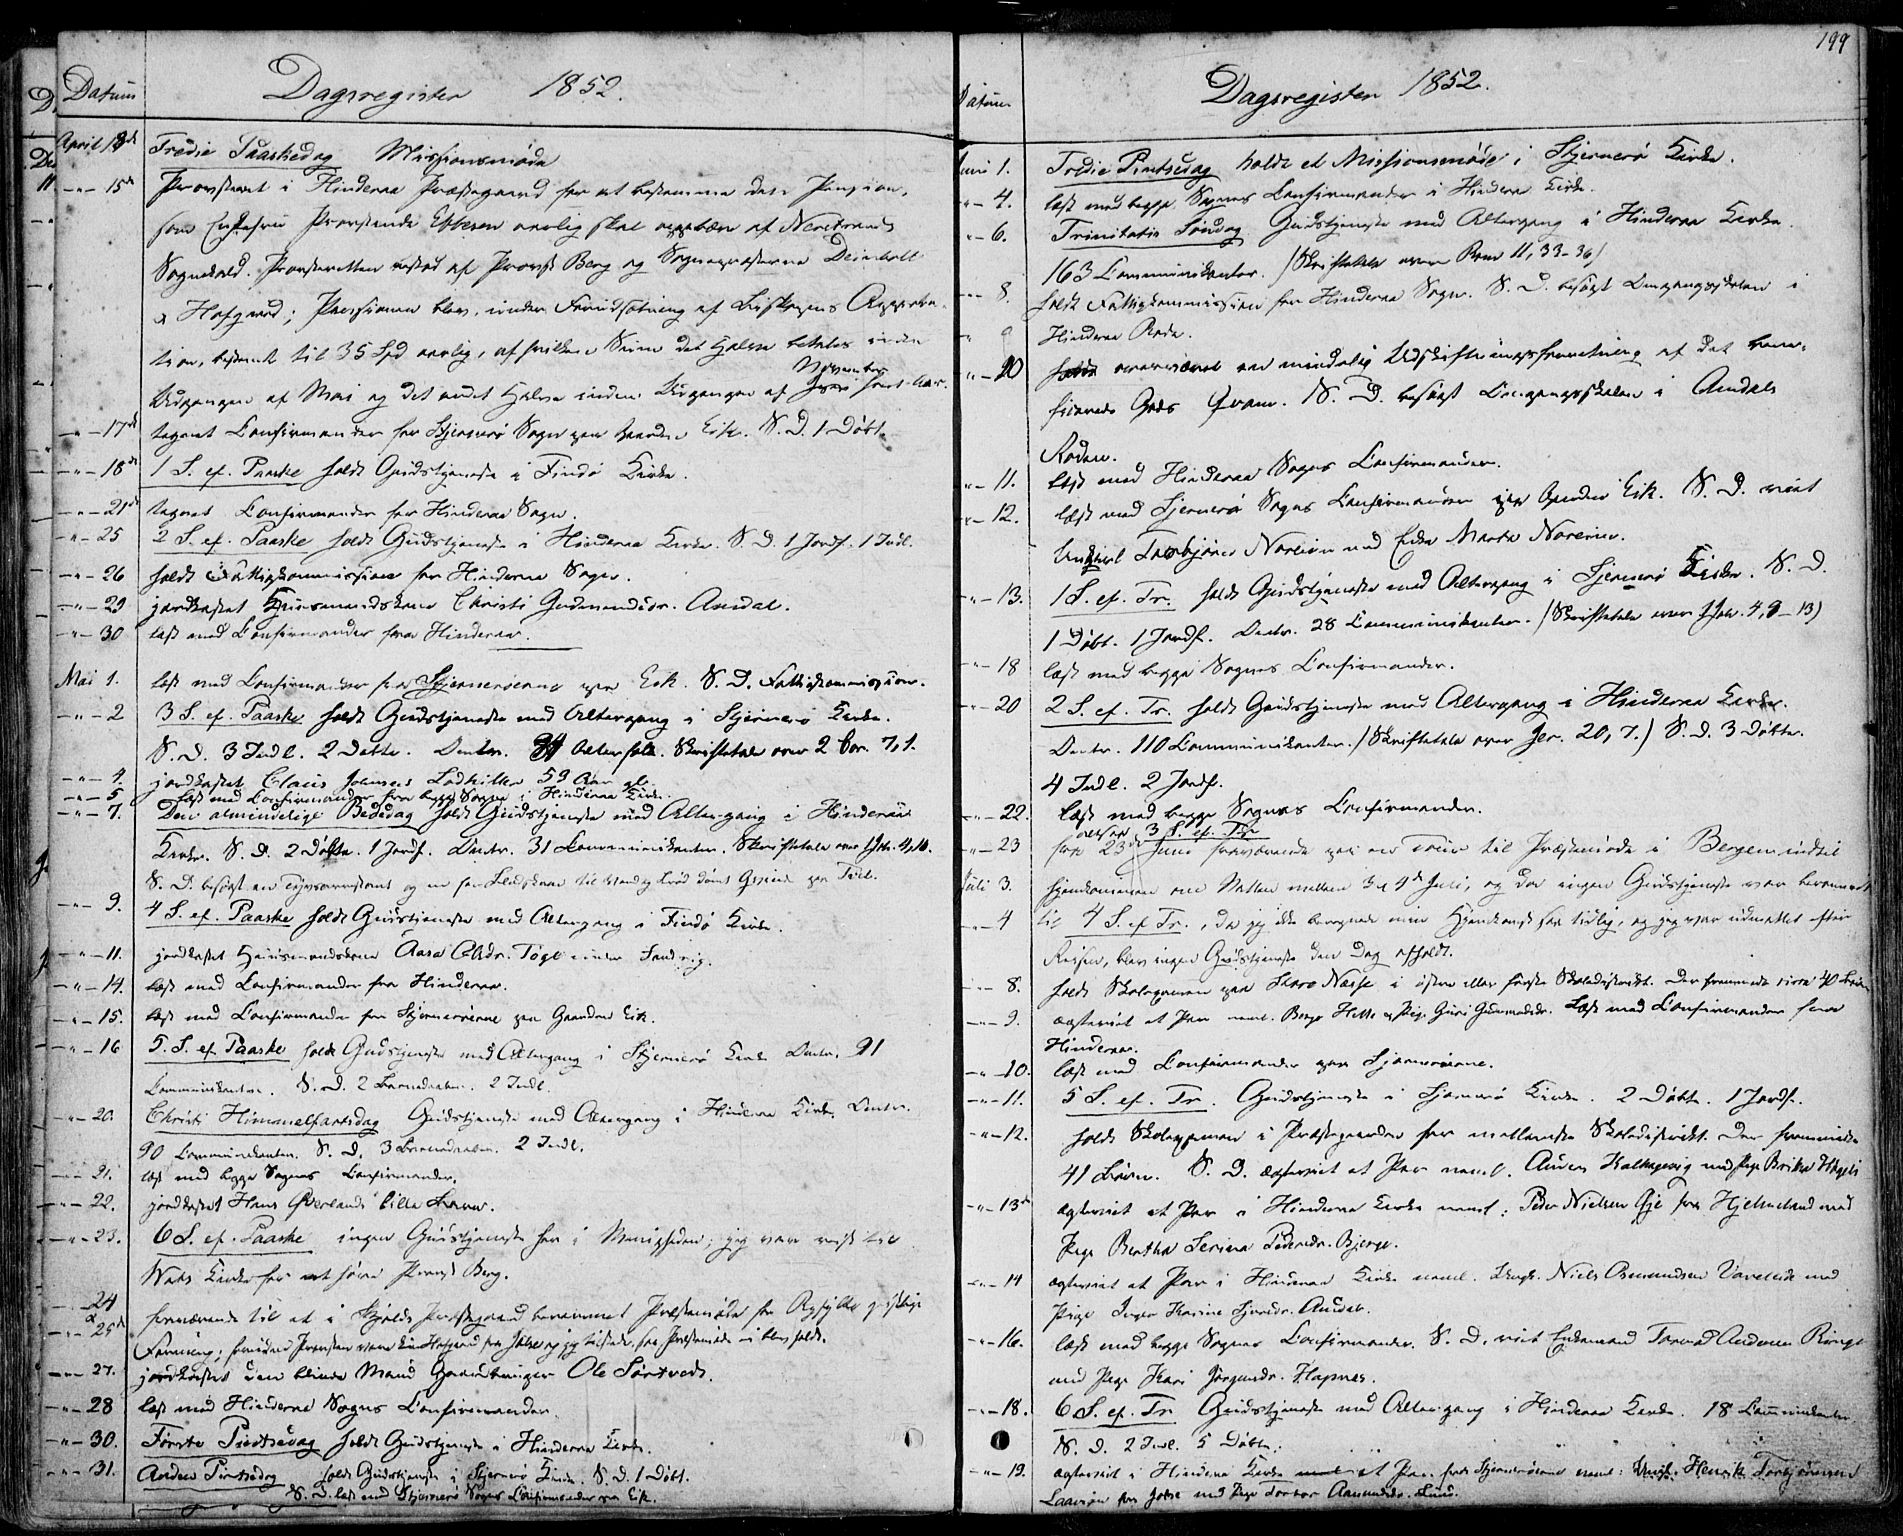 Datum Dagsregister 1852.
April 13de Tredie Paaskedag Missionsmøde
-"- 15de Provsteret i Hinderaa Præstegaard for at bestemme den Pension,
som Enkefru Provstinde Ebbesen aarlig skal oppebære af Nerstrands
Sognekald. Provsteretten bestod af Provst Berg og Sognepræsterne Deinboll
& Hofgaard; Pensionen blev, under Forudsætning af Biskopens Approba-
tion, bestemt til 35 Spd aarlig, af hvilken Sum det Halve betales inden
Udgangen af Mai og det andet Halve inden Udgangen af November
-"- 17de tegnet Confirmander for Stjernerø Sogn paa Gaarden Eik. S. D. 1 Døbt.
-"- 18de 1 S. ef. Paaske holdt Gudstjeneste i Findø Kirke.
-"- 21de tegnet Confirmander for Hinderaa Sogn.
-"- 25 2 S. ef. Paaske holdt Gudstjeneste i Hinderaa Kirke. S. D. 1 Jordf. 1 Indl.
-"- 26 holdt Fattigkommission for Hinderaa Sogn.
-"- 29 jordkastet Huusmandskone Christi Gudmundsdr. Amdal.
-"- 30 læst med Confirmander fra Hinderaa.
Mai 1. læst med Confirmander fra Stjernerøerne paa Eik. S. D. Fattigkommission.
-"- 2 3 S. ef. Paaske holdt Gudstjeneste med Altergang i Stjernerø Kirke.
S. D. 3 Indl. 2 Døbte. Omtr. Altersfolk. Skriftetale over 2 Cor. 7, 1.
-"- 4. jordkastet Claus Johnsen 59 Aar gl.
-"- 5 læst med Confirmander fra begge Sogne i Hinderaa Kirke.
-"- 7. Den almindelige Bededag holdt Gudstjeneste med Altergang i Hinderaa
Kirke. S. D. 2 Døbte. 1 Jordf. Omtr. 31 Communikanter. Skriftetale over 1 Joh. 4, 10.
S. D. besøgt en og en
-"- 9. 4 S. ef. Paaske holdt Gudstjeneste med Altergang i Findø Kirke.
-"- 11. jordkastet Huusmandskone Aasa under Sandvig.
-"- 14. læst med Confirmander fra Hinderaa.
-"- 15. læst med Confirmander fra Stjernerøerne paa Gaarden Eik.
-"- 16 5. S. ef. Paaske holdt Gudstjeneste med Altergang i Stjernerø Kirke Omtr. 91
Communikanter. S. D. 2 Barnedaaben. 2 Indl.
-"- 20. Christi Himmelfartsdag Gudstjeneste med Altergang i Hinderaa Kirke. Omtr.
90 Communikanter. S. D. 3 Barnedaaben. 2 Indl.
-"- 21. læst med begge Sognes Confirmander.
-"- 22. jordkastet Hans Øverlands lille Barn.
-"- 23. 6 S. ef. Paaske ingen Gudstjeneste her i Menigheden; jeg var reist til
Wats Kirke for at høre Provst Berg.
-"- 24
& -"- 25de fraværende til et i Skjolds Præstegaard berammet Præstemøde for Ryfylke gejstlige
Forening;
-"- 27. jordkastet den blinde Mand Gaardbruger Ole Sørtveds.
-"- 28 læst med Hinderaa Sogns Confirmander.
-"- 30. Første Pintsedag holdt Gudstjeneste i Hinderaa Kirke.
-"- 31. Anden Pintsedag holdt Gudstjeneste i Stjernerø Kirke. S. D. 1 Døbt.
S. D. læst med Stjernerø Sogns Confirmander paa Eik.
199
Datum Dagsregister 1852.
Juni 1. Tredie Pintsedag holdt et Missionsmøde i Stjernerø Kirke.
-"- 4. læst med begge Sognes Confirmander i Hinderaa Kirke.
-"- 6. Trinitatis Søndag Gudstjeneste med Altergang i Hinderaa Kirke.
163 Communikanter. (Skriftetale over Rom 11, 33-36)
-"- 8. holdt Fattigkommission for Hinderaa Sogn. S. D. besøgt Omgangsskolen i
Hinderaa Rode.
-"- 10 overværet en mindelig Udskiftningsforretning af det bene-
ficerede Gods Qvam. S. D. besøgt Omgangsskolen i Amdals
Roden.
-"- 11. læst med Hinderaa Sogns Confirmander.
-"- 12. læst med Stjernerø Sogns Confirmander paa Gaarden Eik. S. D. viet
Ungkarl Torbjørn med Enke Marta
-"- 13. 1 S. ef. Tr. holdt Gudstjeneste med Altergang i Stjernerø Kirke. S. D.
1 Døbt. 1 Jordf. Omtr. 28 Communikanter. (Skriftetale over 1 Joh. 4, 9-13)
-"- 18 læst med begge Sognes Confirmander.
-"- 20 2 S. ef. Tr. holdt Gudstjeneste med Altergang i Hinderaa Kirke.
Omtr. 110 Communikanter. (Skriftetale over Jer. 20, 7.) S. D. 3 Døbte.
4 Indl. 2 Jordf.
-"- 22. læst med begge Sognes Confirmander.
3 S. ef. Tr
-"- 23 fra 23de Juni fraværende paa en Tour til Præstemøde i Bergen indtil
Juli 3. hjemkommen om Natten mellem 3 og 4de Juli, og da ingen Gudstjeneste var berammet
-"- 4 til 4 S. ef. Tr., da jeg ikke beregnede min Hjemkomst saa tidlig, og jeg var udmattet efter
Reisen, blev ingen Gudstjeneste den Dag afholdt.
-"- 8. holdt Skoleexamen paa Store Næsse i østre eller første Skoledistrikt. Der fremmødte circa 40 Børn
-"- 9. ægteviet et Par neml. Børge Hette og Pige Guri Læst med Confirmander fra
Hinderaa.
-"- 10. læst med Confirmander paa Stjernerøerne.
-"- 11. 5 S. ef. Tr. Gudstjeneste i Stjernerø Kirke. 2 Døbte. 1 Jordf.
-"- 12. holdt Skoleexamen i Præstegaarden for mellemste Skoledistrikt. Der fremmødte
41 Børn. S. D. ægteviet et Par neml. med Pige Brita
-"- 13de ægteviet et Par i Hinderaa Kirke neml: Peder Nielsen fra Hjelmeland med
Pige Bertha Serina Pedersdr. Bjerge.
-"- 14 ægteviet et Par i Hinderaa Kirke neml. Ungk. Niels Osmundsen med
Pige Inger Karine Amdal.
-"- 16. læst med begge Sognes Confirmander. S. D. viet Enkemand Andersen
med Pige Kari
-"- 18. 6 S. ef. Tr Gudstjeneste med Altergang i Hinderaa Kirke. 18 Communikanter
S. D. 2 Indl. 5 Døbte.
-"- 19. ægteviet i Hinderaa Kirke et Par fra Stjernerøerne neml: Ungk. Henrik Torbjørnsen
med Pige Aamundsdr.